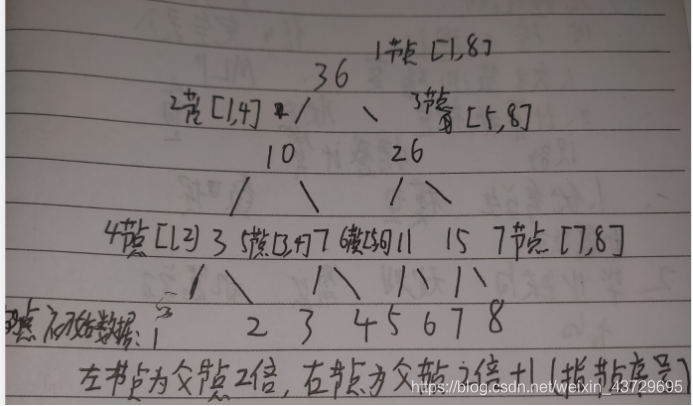 1节点 [1,8]
36
2节点 [1,4] 3节点 [5,8]
10 26
4节点 [1,2] 3 5节点[3,4] 7 6节点[5,6] 11 15 7节点 [7,8]
原始数据: 1 2 3 4 5 6 7 8
左节点为父节点2倍, 右节点为父节点2倍+1 (指节点序号)
https://blog.csdn.net/weixin_43729695